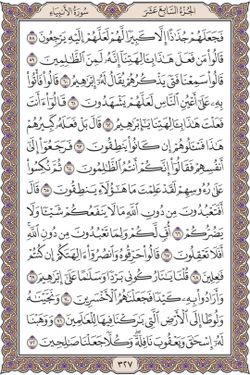 الجزء السابع عشر سورة الأنبياء
فَجَعَلَهُمْ جُذَٰذًا إِلَّا كَبِيرًا لَّهُمْ لَعَلَّهُمْ إِلَيْهِ يَرْجِعُونَ ٥٨
قَالُوا۟ مَن فَعَلَ هَٰذَا بِـَٔالِهَتِنَآ إِنَّهُۥ لَمِنَ ٱلظَّٰلِمِينَ ٥٩
قَالُوا۟ سَمِعْنَا فَتًى يَذْكُرُهُمْ يُقَالُ لَهُۥٓ إِبْرَٰهِيمُ ٦٠ قَالُوا۟ فَأْتُوا۟
بِهِۦ عَلَىٰٓ أَعْيُنِ ٱلنَّاسِ لَعَلَّهُمْ يَشْهَدُونَ ٦١ قَالُوٓا۟ ءَأَنتَ
فَعَلْتَ هَٰذَا بِـَٔالِهَتِنَا يَٰٓإِبْرَٰهِيمُ ٦٢ قَالَ بَلْ فَعَلَهُۥ كَبِيرُهُمْ
هَٰذَا فَسْـَٔلُوهُمْ إِن كَانُوا۟ يَنطِقُونَ ٦٣ فَرَجَعُوٓا۟ إِلَىٰٓ
أَنفُسِهِمْ فَقَالُوٓا۟ إِنَّكُمْ أَنتُمُ ٱلظَّٰلِمُونَ ٦٤ ثُمَّ نُكِسُوا۟
عَلَىٰ رُءُوسِهِمْ لَقَدْ عَلِمْتَ مَا هَٰٓؤُلَآءِ يَنطِقُونَ ٦٥ قَالَ
أَفَتَعْبُدُونَ مِن دُونِ ٱللَّهِ مَا لَا يَنفَعُكُمْ شَيْـًٔا وَلَا
يَضُرُّكُمْ ٦٦ أُفٍّ لَّكُمْ وَلِمَا تَعْبُدُونَ مِن دُونِ ٱللَّهِ
أَفَلَا تَعْقِلُونَ ٦٧ قَالُوا۟ حَرِّقُوهُ وَٱنصُرُوٓا۟ ءَالِهَتَكُمْ إِن كُنتُمْ
فَٰعِلِينَ ٦٨ قُلْنَا يَٰنَارُ كُونِى بَرْدًا وَسَلَٰمًا عَلَىٰٓ إِبْرَٰهِيمَ ٦٩
وَأَرَادُوا۟ بِهِۦ كَيْدًا فَجَعَلْنَٰهُمُ ٱلْأَخْسَرِينَ ٧٠ وَنَجَّيْنَٰهُ
وَلُوطًا إِلَى ٱلْأَرْضِ ٱلَّتِى بَٰرَكْنَا فِيهَا لِلْعَٰلَمِينَ ٧١ وَوَهَبْنَا
لَهُۥٓ إِسْحَٰقَ وَيَعْقُوبَ نَافِلَةً وَكُلًّا جَعَلْنَا صَٰلِحِينَ ٧٢
٣٢٧